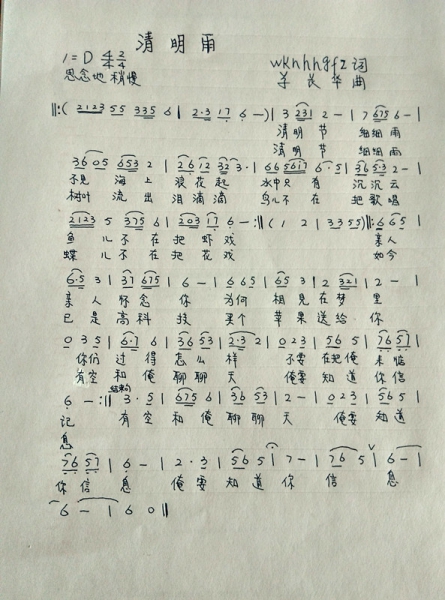 清明雨
1=D 4/4 2/4 wknhhgfz词
思念地 稍慢 羊長华曲
‖:( 2123 55 335 6 | 2·3 17 6 - ) | 3 231 2 - | 7 675 6 - |
清明节 细细雨
清明节 细细雨
36 05 653 2 | 26 12 323· | 66 5617 6·5 | 36 53 2 - |
不见 海上 浪花起 水中只有 沉沉云
树叶 流出 泪滴滴 鸟儿不在 把歌唱
2123 5 375 6 | 203 17 6 - :‖ ( 1 2 | 33 55 ) ‖: 6 65 |
鱼儿不在把虾戏 亲人
蝶儿不在把花戏 如今
6·5 3 | 37 675 | 6 - | 6 65 | 65 3 | 2 321 | 2 - |
亲人怀念你 为何相见在梦里
已是高科技 买个苹果送给你
0 3 5 | 6·7 6 | 36 53 | 2·32 | 0 23 | 56 5 | 76 57 |
你们过得怎么样 不要在把俺来惦
有空和俺聊聊天 俺要知道你信
结束句
6 - :‖ 3·5 | 675 6 | 36 53 | 2 - | 0 23 | 56 5 |
记 有空和俺聊聊天 俺要知道
息
76 57 | 6 - | 2·3 | 56 5 | 7 - | 76 5 | 6 - |
你信息 俺要知道你信息
6 - | 6 0 ‖